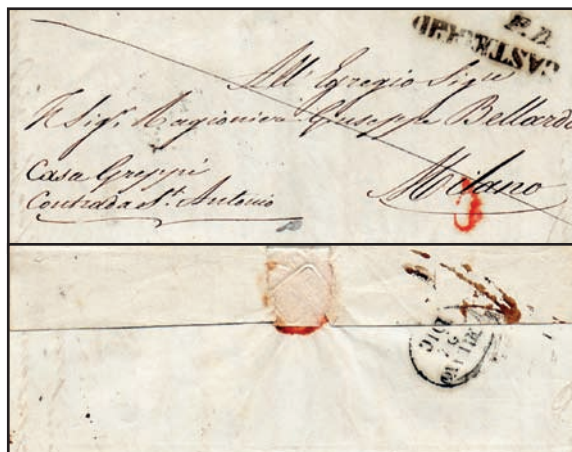 P.P.
CASTEGGIO
All' Egregio Sigre
Il Sigr. Ragioniere Giuseppe Bellardi
Casa Greppi
Milano
Contrada St. Antonio
MILANO